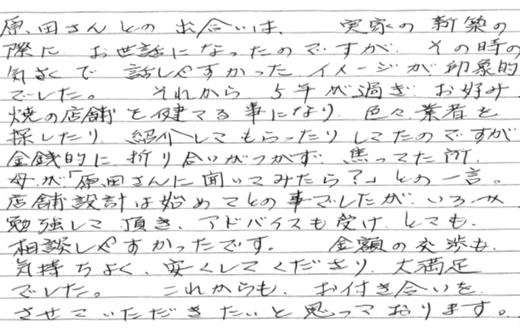 原田さんとの出合いは、 実家の新築の
際に お世話になったのですが、その時の
気さくで 話しやすかった イメージが 印象的
でした。 それから 5年が過ぎ お好み
焼の店舗を建てる事になり、色々業者を
探したり 紹介してもらったりしてたのですが
金銭的に 折り合いがつかず 焦ってた所、
母が「原田さんに聞いてみたら?」との一言。
店舗設計は始めてとの事でしたが、いろいろ
勉強して頂き、アドバイスも受け、とても、
相談しやすかったです。 金額の交渉も、
気持ちよく、安くしてくださり、大満足
でした。 これからも、お付き合いを
させていただきたいと思っております。